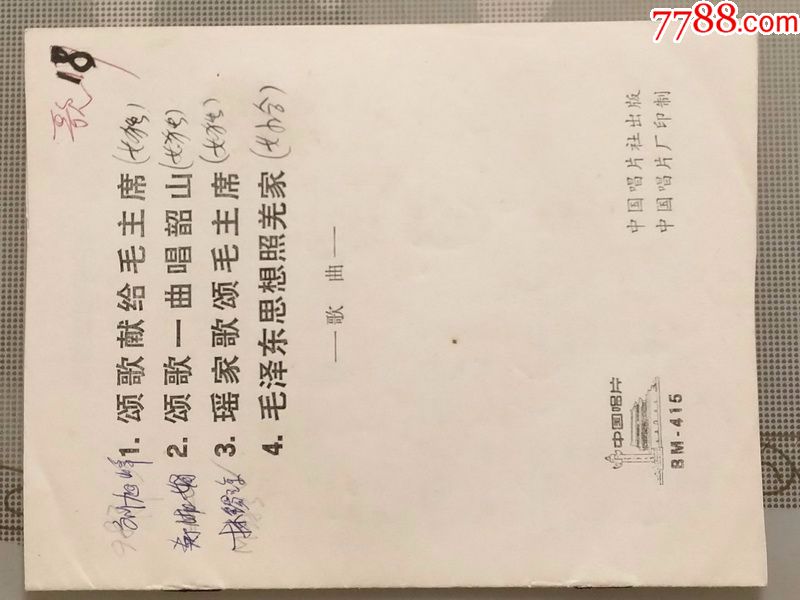 7788.com
歌18
1. 颂歌献给毛主席（女独）
2. 颂歌一曲唱韶山（女独）
3. 瑶家歌颂毛主席（女独）
4. 毛泽东思想照羌家（女小合）
—歌 曲—
中国唱片
BM-415
中国唱片社出版
中国唱片厂印制